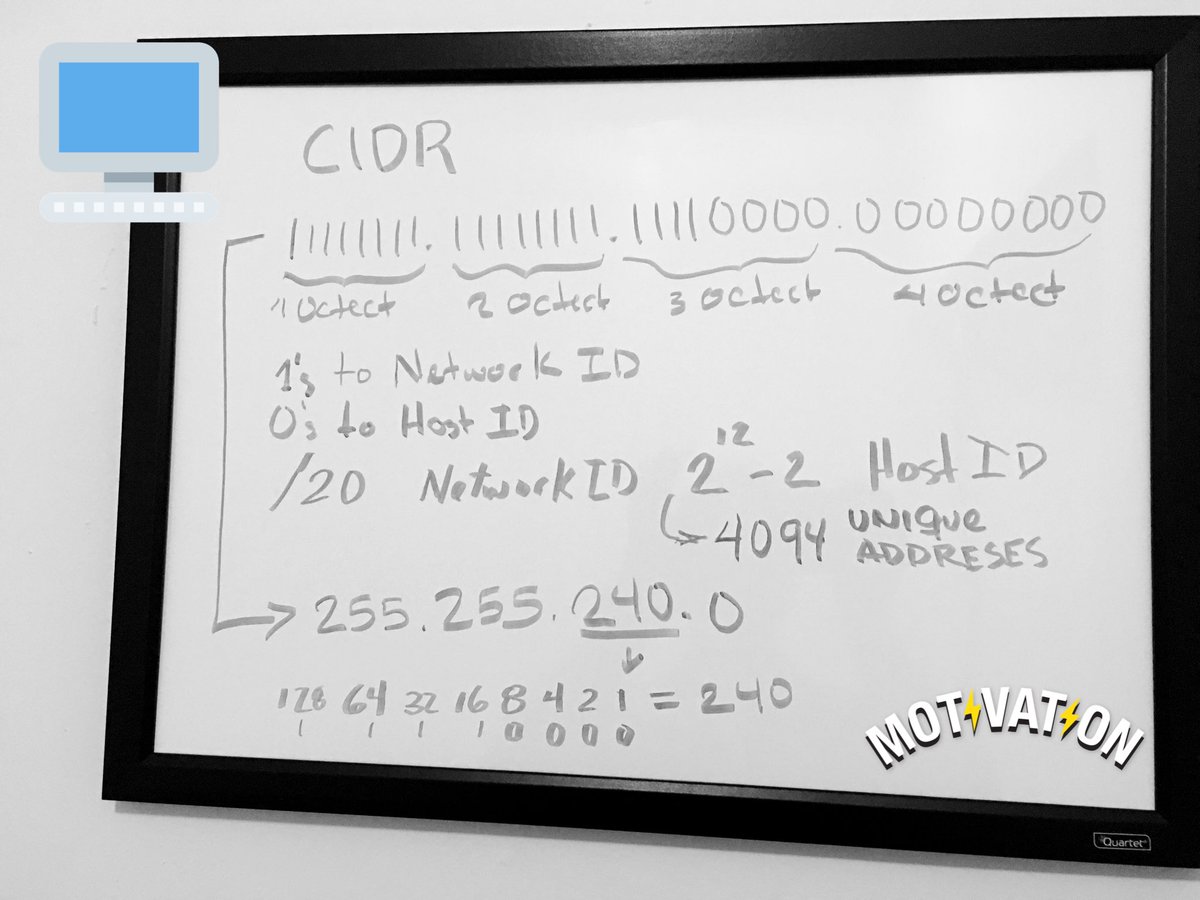 CIDR
11111111.11111111.11110000.00000000
1 Octect 2 Octect 3 Octect 4 Octect
1's to Network ID
0's to Host ID
/20 Network ID 2¹²-2 Host ID
4094 UNIQUE
ADDRESES
255.255.240.0
128 64 32 16 8 4 2 1 = 240
1 1 1 1 0 0 0 0
MOTIVATION
Quartet